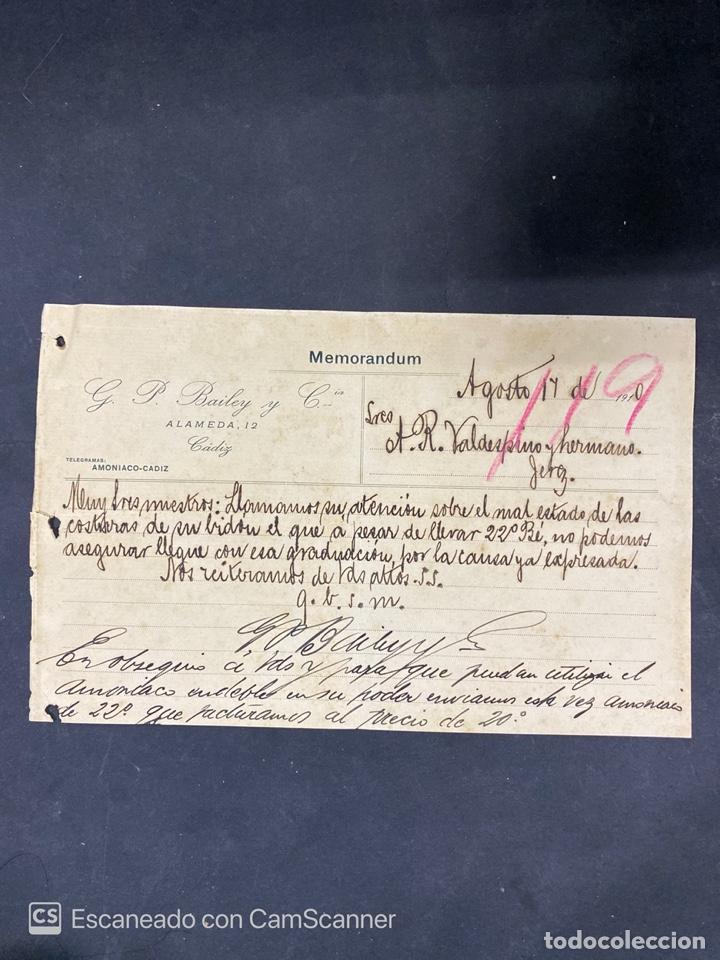 Memorandum
G. P. Bailey y Cía
ALAMEDA, 12
Cádiz
TELEGRAMAS:
AMONIACO-CADIZ
Agosto 17 de 1910
119
Sres
A. R. Valdespino y hermano.
Jerz.
Muy Sres nuestros: Llamamos su atención sobre el mal estado de las
costuras de su bidón el que a pesar de llevar 22º Bé, no podemos
asegurar llegue con esa graduación, por la causa ya expresada.
Nos reiteramos de Vds attos. s.s.
q. b. s. m.
G P Bailey y C
En obsequio á Vds y para que puedan utilizar el
amoniaco endeble en su poder enviamos esta vez amoniaco
de 22º que facturamos al precio de 20º
CS Escaneado con CamScanner
todocoleccion